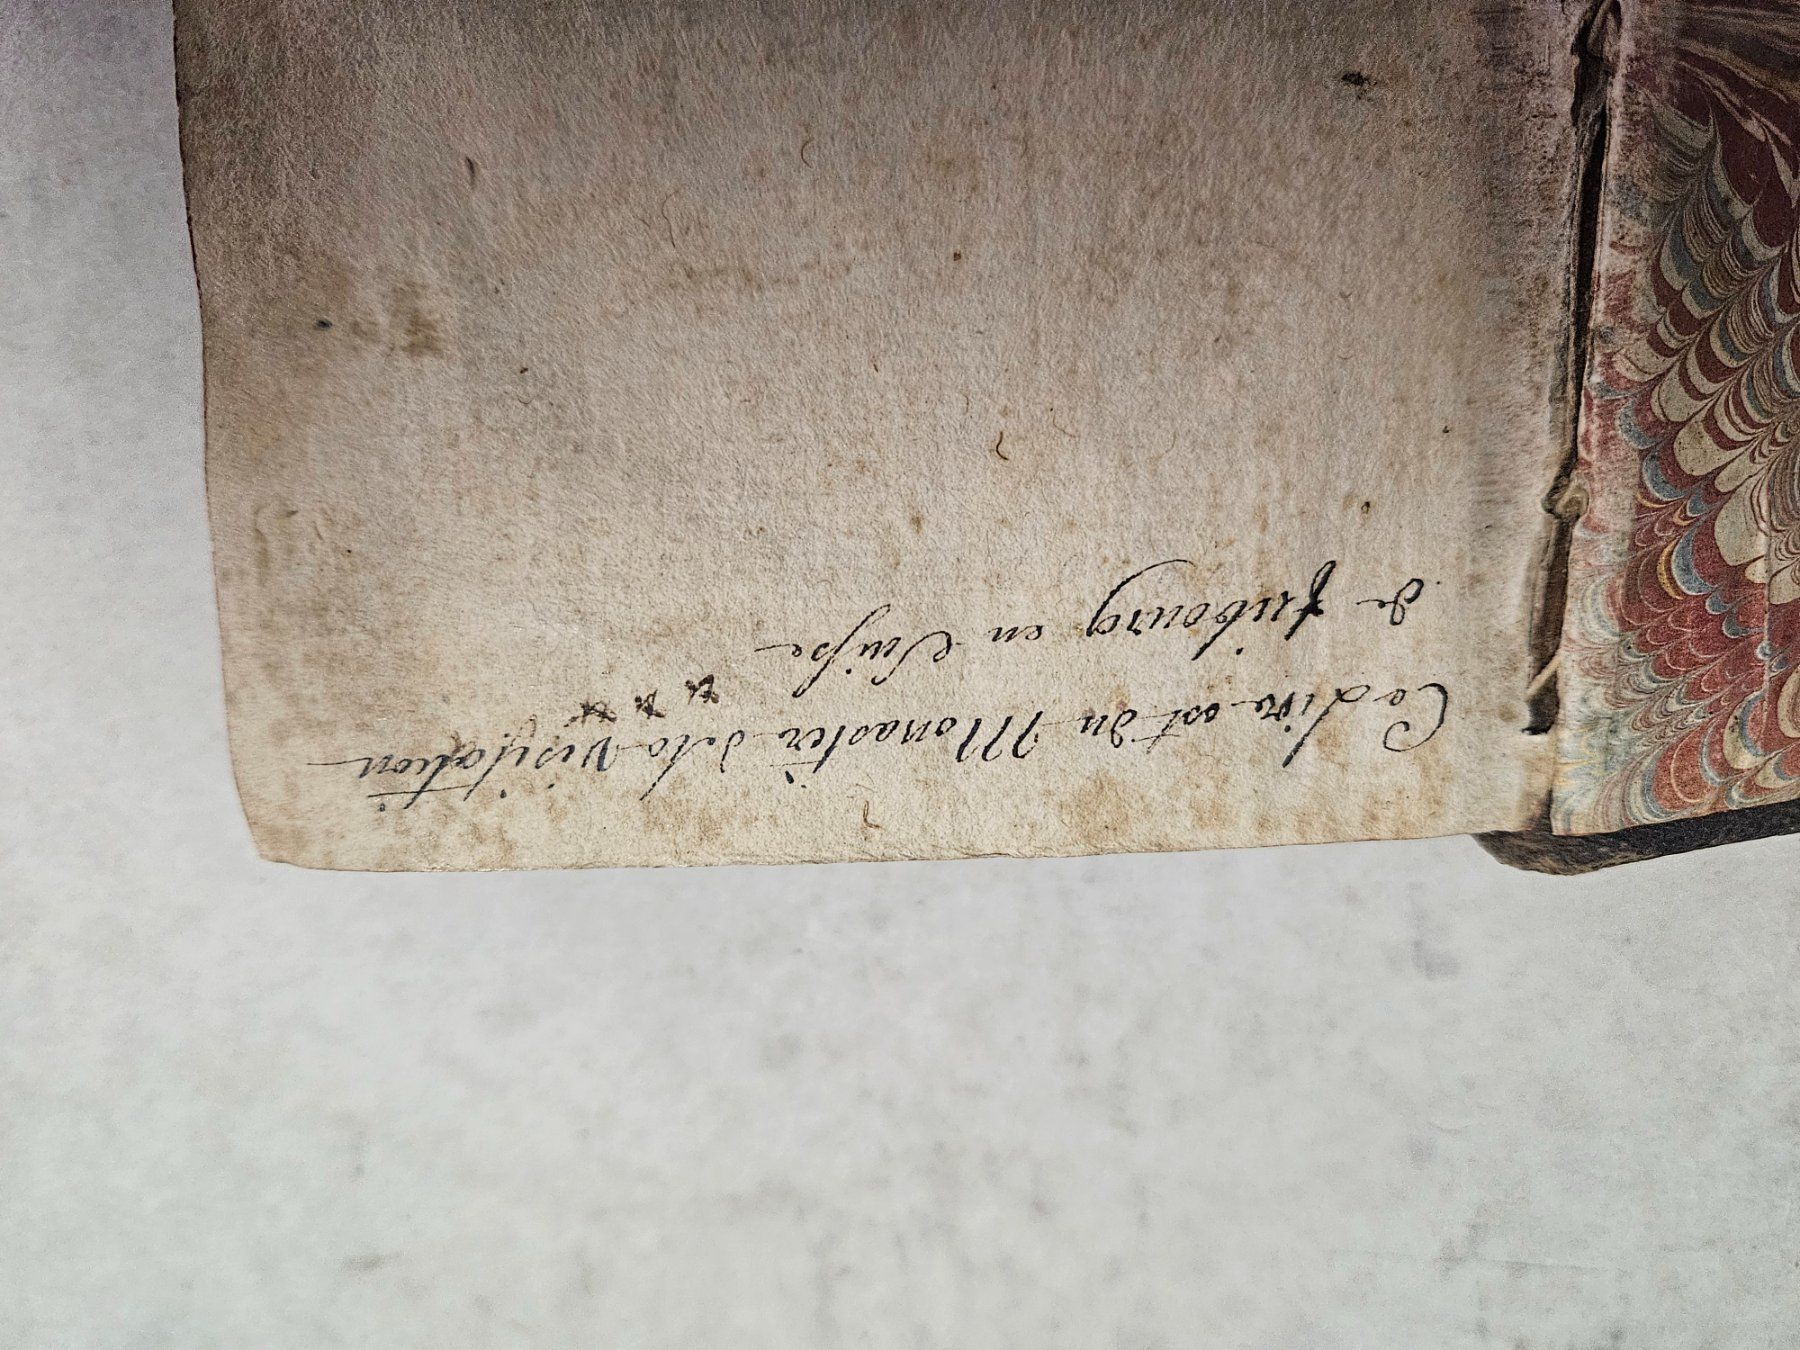 Ce livre est du Monastere de la Visitation
de fribourg en Suisse